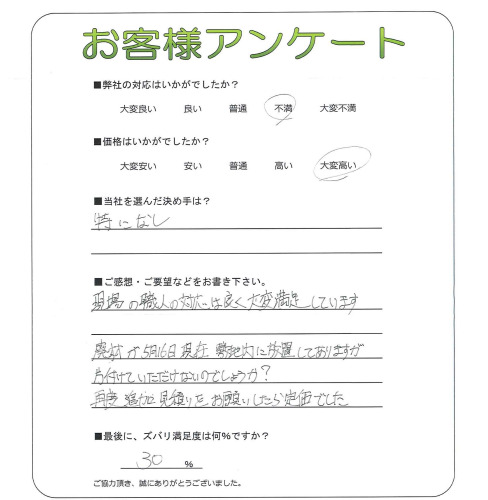 お客様アンケート
■弊社の対応はいかがでしたか？
大変良い 良い 普通 不満 大変不満
■価格はいかがでしたか？
大変安い 安い 普通 高い 大変高い
■当社を選んだ決め手は？
特になし
■ご感想・ご要望などをお書き下さい。
現場の職人の対応は良く大変満足しています
廃材が5月16日現在 敷地内に放置しておりますが
片付けていただけないのでしょうか？
再度追加見積りをお願いしたら定価でした
■最後に、ズバリ満足度は何%ですか？
30 %
ご協力頂き、誠にありがとうございました。